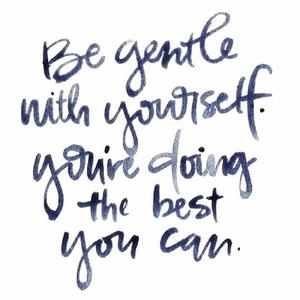 Be gentle
with yourself.
you're doing
the best
you can.